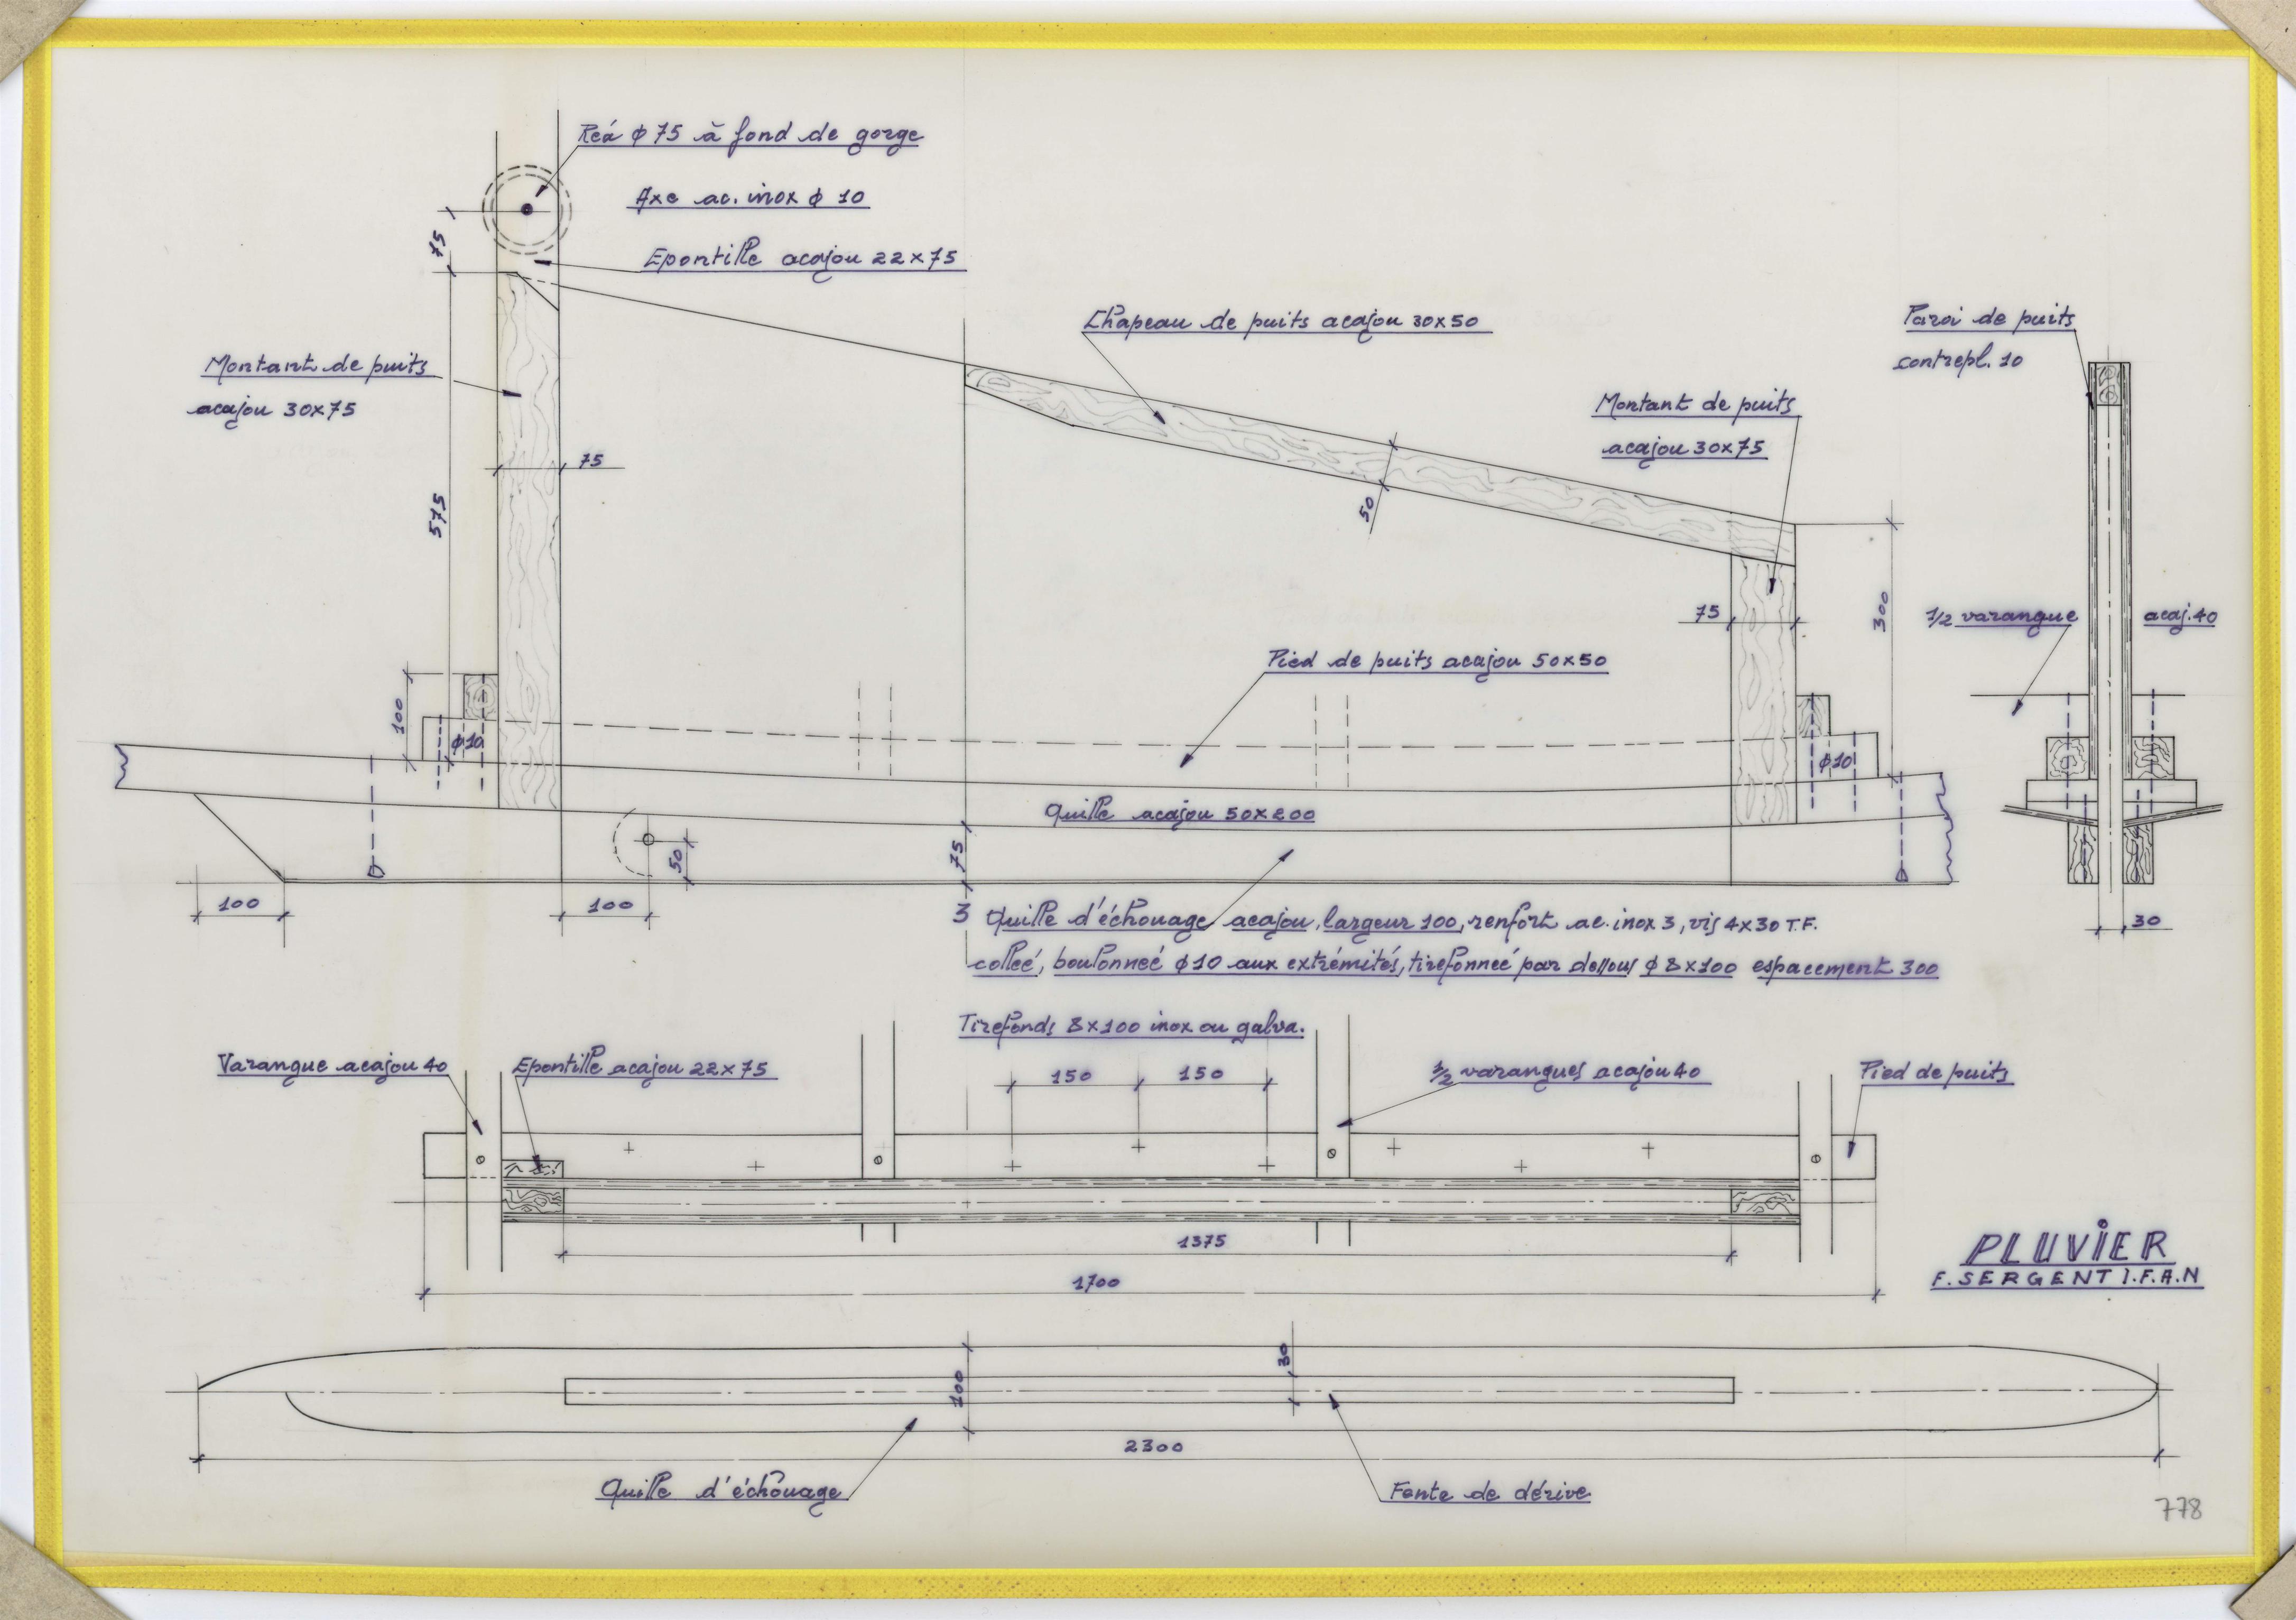 Réa φ 75 à fond de gorge
Axe ac. inox φ 10
Epontille acajou 22x75
75
Chapeau de puits acajou 30x50
Paroi de puits
contrepl. 10
Montant de puits
acajou 30x75
Montant de puits
acajou 30x75
75
50
575
75
300
1/2 varangue
acaj. 40
Pied de puits acajou 50x50
100
φ10
φ10
Quille acajou 50x200
50
75
100
100
3
30
Quille d'échouage acajou, largeur 100, renfort ac. inox 3, vis 4x30 T.F.
collée, boulonnée φ10 aux extrémités, tirefonnée par dessous φ 8x100 espacement 300
Tirefonds 8x100 inox ou galva.
Varangue acajou 40
Epontille acajou 22x75
150
150
1/2 varangues acajou 40
Pied de puits
1375
1700
PLUVIER
F. SERGENT I.F.A.N
30
100
2300
Quille d'échouage
Fente de dérive
778